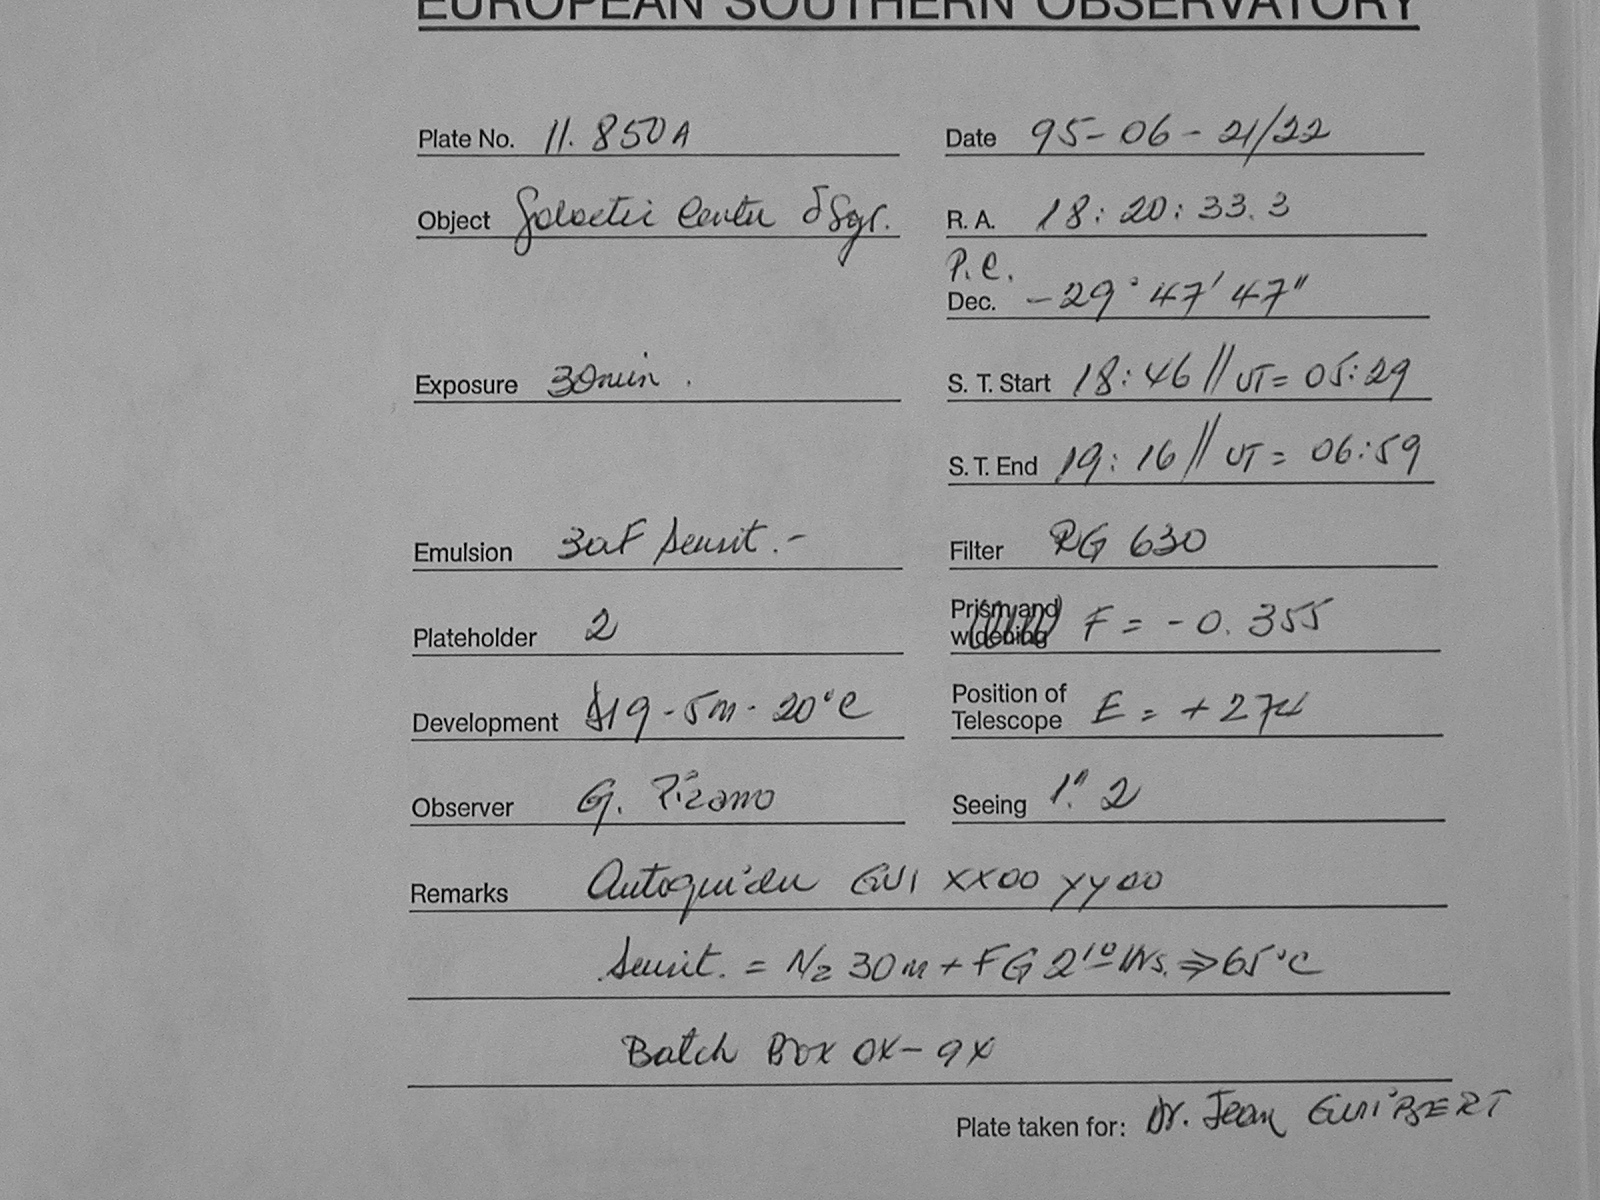 EUROPEAN SOUTHERN OBSERVATORY
Plate No. 11.850A Date 95-06-21/22
Object Galactic Center δ Sgr. R. A. 18:20:33.3
P.C.
Dec. -29° 47' 47"
Exposure 30min. S. T. Start 18:46 // UT= 05:29
S. T. End 19:16 // UT= 06:59
Emulsion 3aF Sensit.- Filter RG 630
Plateholder 2 Prism and widening F = -0.355
Development D19-5m-20°C Position of Telescope E = +274
Observer G. Pizarro Seeing 1."2
Remarks Autoguider GUI XX00 YY00
Sensit. = N2 30m + FG 2 Hrs. ⇒ 65°C
Batch Box 0X-9X
Plate taken for: Dr. Jean GUIBERT